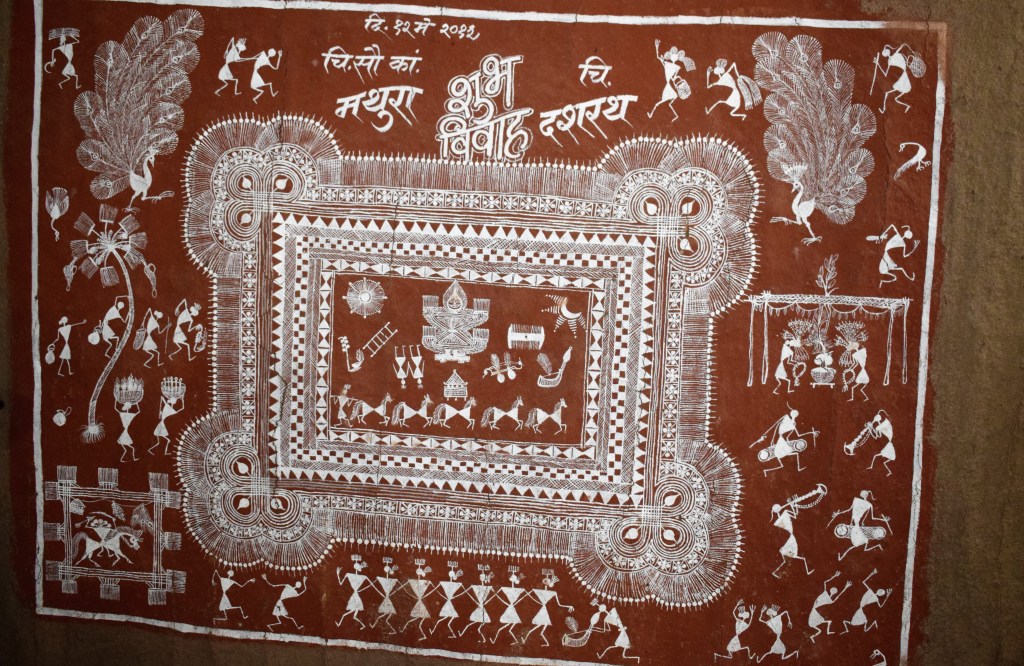 दि. १२ मे २०१२
चि. सौ कां.
मथुरा
शुभ
विवाह
चि.
दशरथ